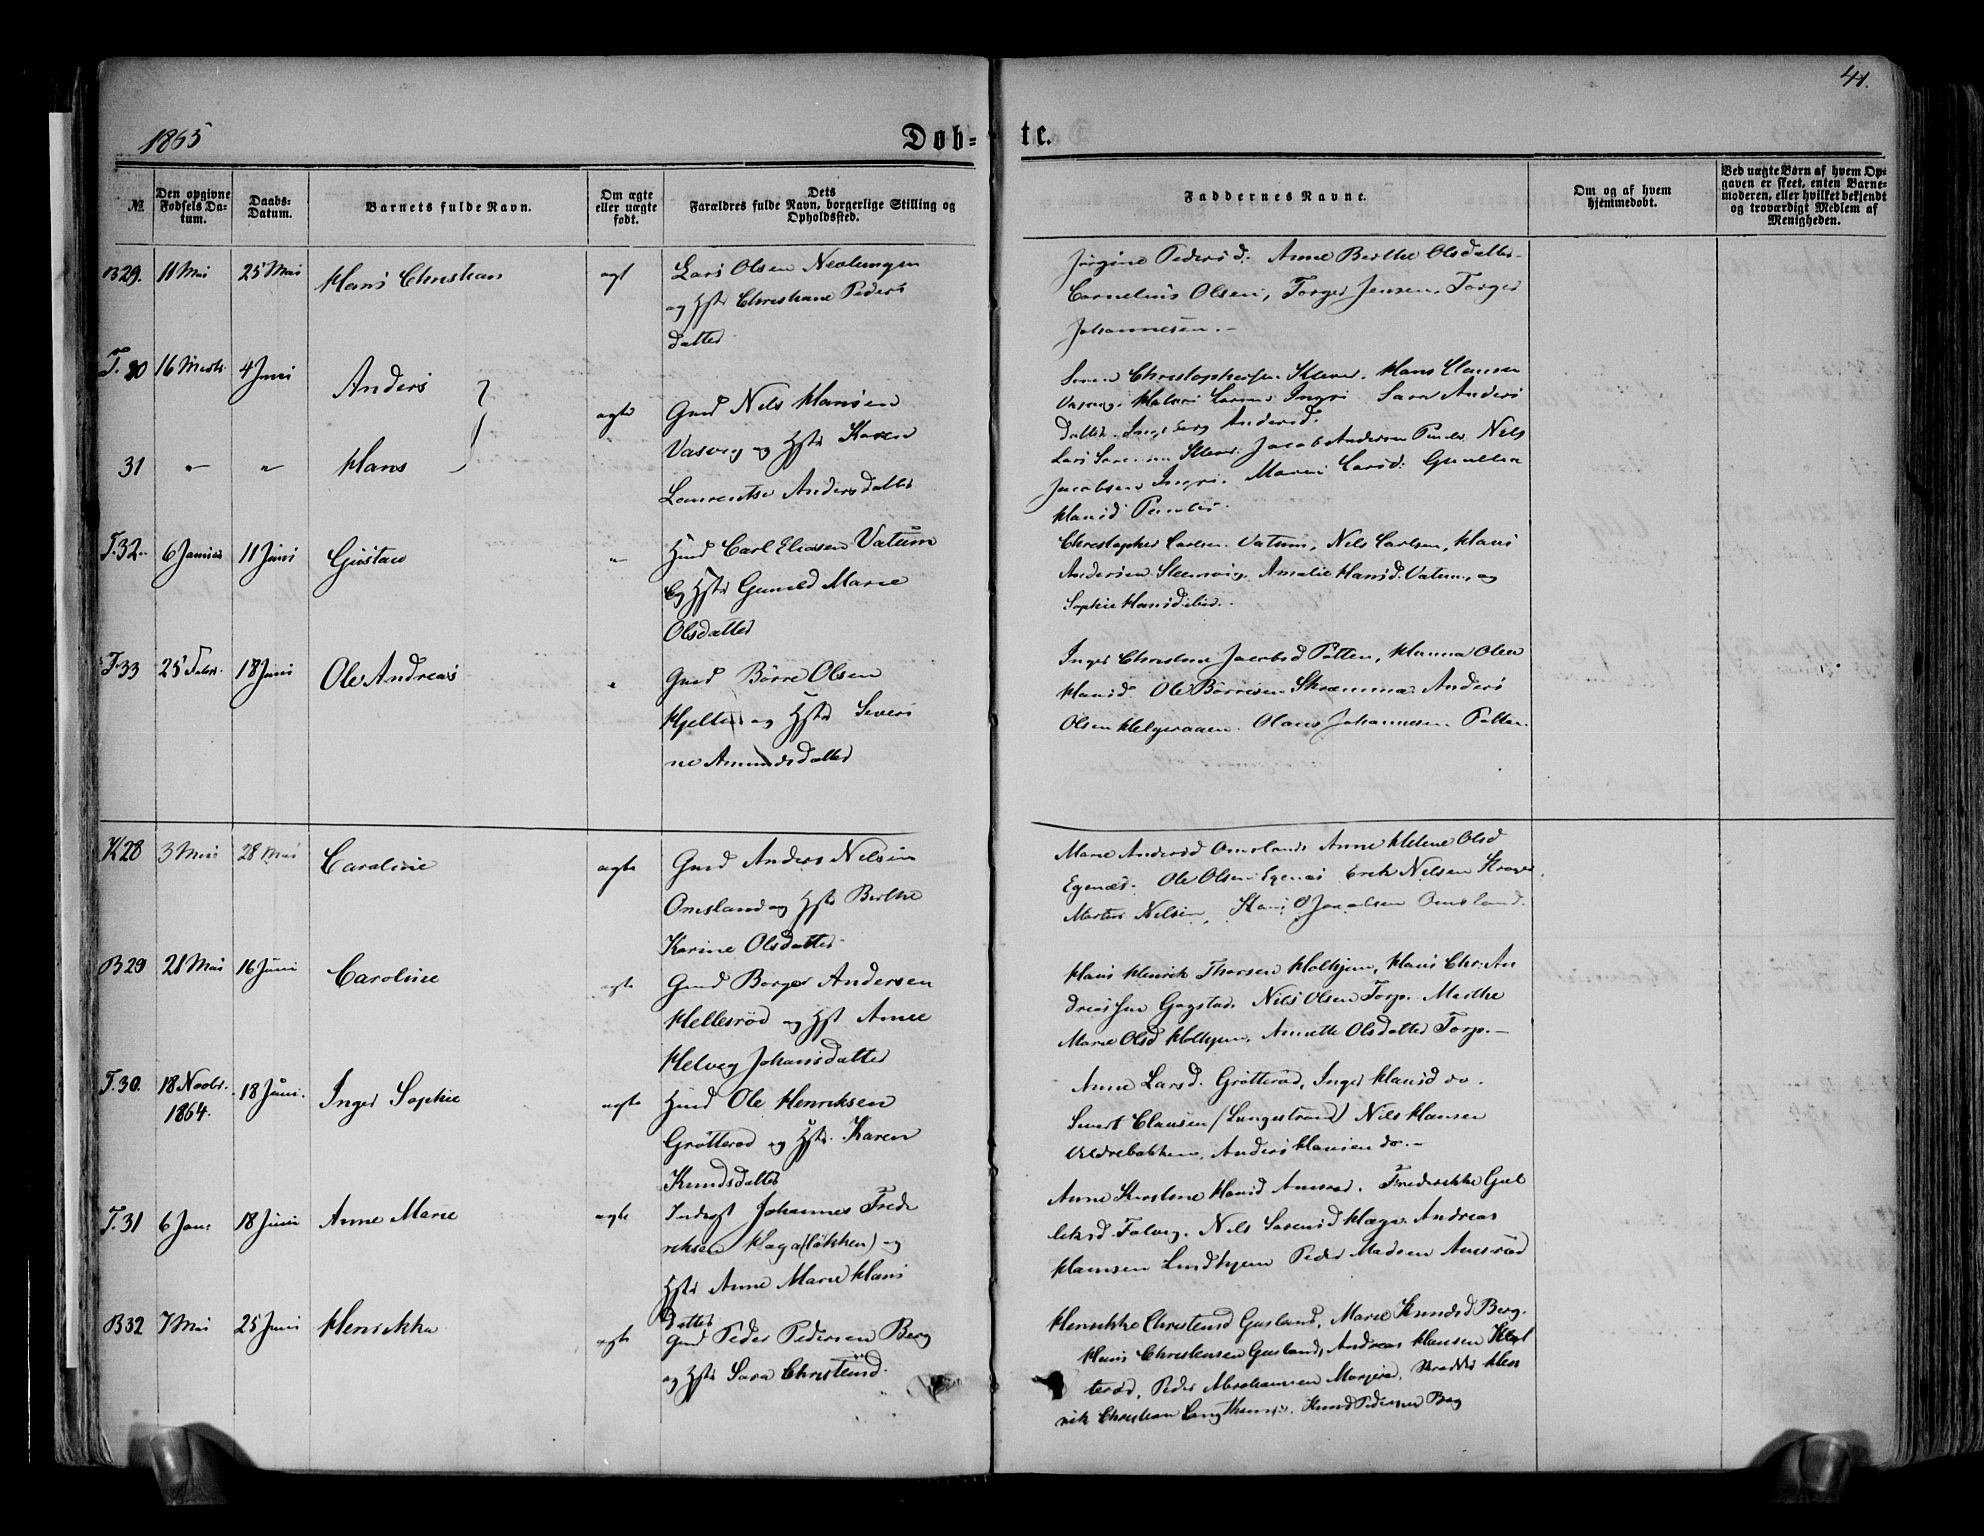 1865
Døb-
te.
41.
№
Den opgivne Fødsels Datum.
Daabs-Datum.
Barnets fulde Navn.
Om ægte eller uægte født.
Dets Forældres fulde Navn, borgerlige Stilling og Opholdssted.
Faddernes Navne.
Om og af hvem hjemmedøbt.
Ved uægte Børn af hvem Opgaven er skeet, enten Barnemoderen, eller hvilket bekjendt og troværdigt Medlem af Menigheden.
B29. 11 Mai 25 Mai Hans Christian ægt Lars Olsen Nevlungen
og Hstr Christiane Peders
datter
Jørgine Pedersd. Anne Berthe Olsdatter
Cornelius Olsen, Torger Jensen, Torger
Johannesen.
T. 30 16 Marts 4 Juni Anders ægte Gmd Nels Hansen
Vasvig og Hstr Karen
Laurentse Andersdatter
31 " " Hans
Søren Christophersen Klever. Hans Clausen
Vasvig. Ingri. Sara Anders
datter. Ingeborg Andersd.
Lars Sørensen Klever. Jacob Andersen Nels
Jacobsen Ingri. Maren Larsd. Gunilla
Hansd
T.32. 6 Januar 11 Juni Gustav " Hmd Carl Eliasen Vatum
og Hstr Gunild Marie
Olsdatter
Christopher Carlsen Vatum, Nils Carlsen, Hans
Andersen Steensvig, Amalie Hansd. Vatum, og
Sophie Hansd ibid.
T.33 25 Febr. 18 Juni Ole Andreas " Gmd Børre Olsen
Hjelten og Hstr Severi
ne Amundsdatter
Inger Christine Jacobsd Patten, Hanna Olea
Hansd. Ole Børresen Skramma Anders
Olsen Helgeraaen. Olaus Johannesen Patten
K28 3 Mai 28 Mai Caroline ægte Gmd Anders Nelsen
Omsland og Hstr Berthe
Karine Olsdatter
Marie Andersd Omsland Anne Helene Olsd
Egenæs. Ole Olsen Egenæs Erik Nelsen
Martin Nelsen, Hans Jacobsen Omsland.
B29 21 Mai 16 Juni Caroline ægte Gmd Borger Andersen
Hellesrød og Hst Anne
Helvig Johansdatter
Hans Henrik Thorsen Holhjem, Hans Chr. An
dreassen Gogstad. Nils Olsen Torp. Marthe
Marie Olsd Holhjem, Annette Olsdatter Torp.
T.30. 18 Novbr. 1864. 18 Juni. Inger Sophie ægte Hmd Ole Henriksen
Grøtterød og Hstr. Karen
Knudsdatter
Anne Larsd. Grøtterød, Inger Hansd do.
Sivert Clausen (Lungestrand) Nils Hansen
Anders Hansen do.
T.31 6 Jan: 18 Juni Anne Marie ægte Inderst Johannes Frede
riksen Haga (løkken) og
Hstr Anne Marie Hans
datter
Anne Kirstine Hansd Amsrød. Frederikke Gul
liksd Falvig. Nils Andreas
Hansen Lundhjem Peder Madsen Amsrød
B32 7 Mai 25 Juni Henrikka ægte Gmd Peder Pedersen Berg
og Hstr Sara Christensd.
Henrikke Christensd Gusland, Marie Knudsd Berg.
Hans Christensen Gusland, Andreas Hansen
terød, Peder Abrahamsen Hen
rik Christian Knud Pedersen Berg